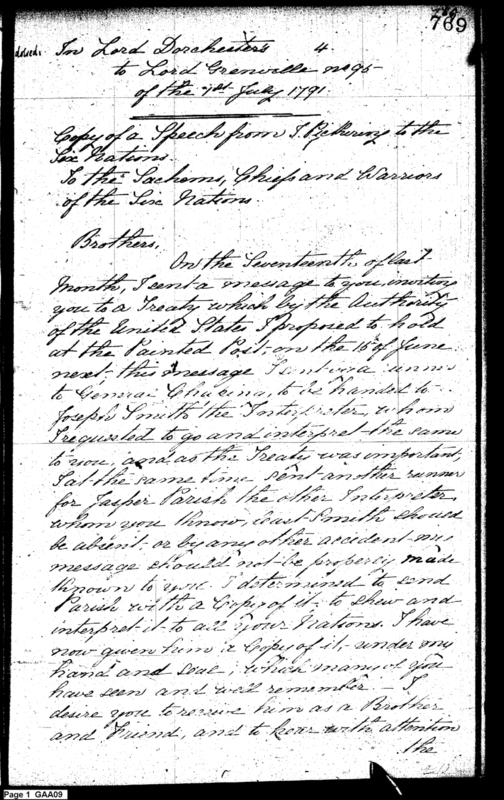 769
In Lord Dorchester's 4.
to Lord Grenville No 95
of the July 1791.
Copy of a Speech from T. Pickering to the
Six Nations.
To the Sachems, Chiefs and Warriors
of the Six Nations.
Brothers,
On the Seventeenth of last
Month, I sent a message to you, inviting
you to a Treaty which by the Authority
of the United States I proposed to hold
at the Painted Post, on the 15th of June
next; this message I sent
to General to be handed to
Joseph Smith the Interpreter, whom
I requested to go and interpret the same
to you, and as the Treaty was important,
I at the same time sent another runner
for Jasper Parish the other Interpreter,
whom you know, least Smith should
be absent, or by any other accident my
message should not be properly made
known to you. I determined to send
Parish with a Copy of it, to shew and
interpret it to all your Nations. I have
now given him a Copy of it, under my
hand and seal, which many of you
have seen and well remember. I
desire you to receive him as a Brother
and Friend, and to hear with attention
the
Page 1 GAA09